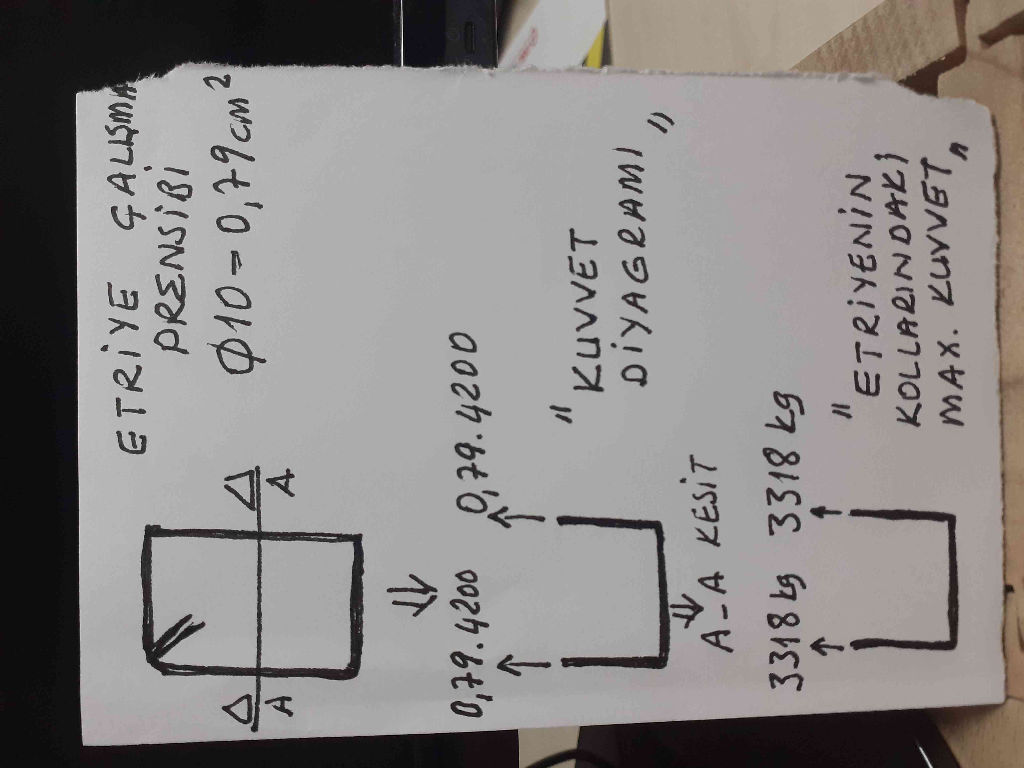 ETRİYE ÇALIŞMA
PRENSİBİ
Φ10=0,79cm²
A
A
0,79.4200
0,79.4200
"KUVVET
DİYAGRAMI"
A-A KESİT
3318 kg
3318 kg
"ETRİYENİN
KOLLARINDAKİ
MAX. KUVVET"